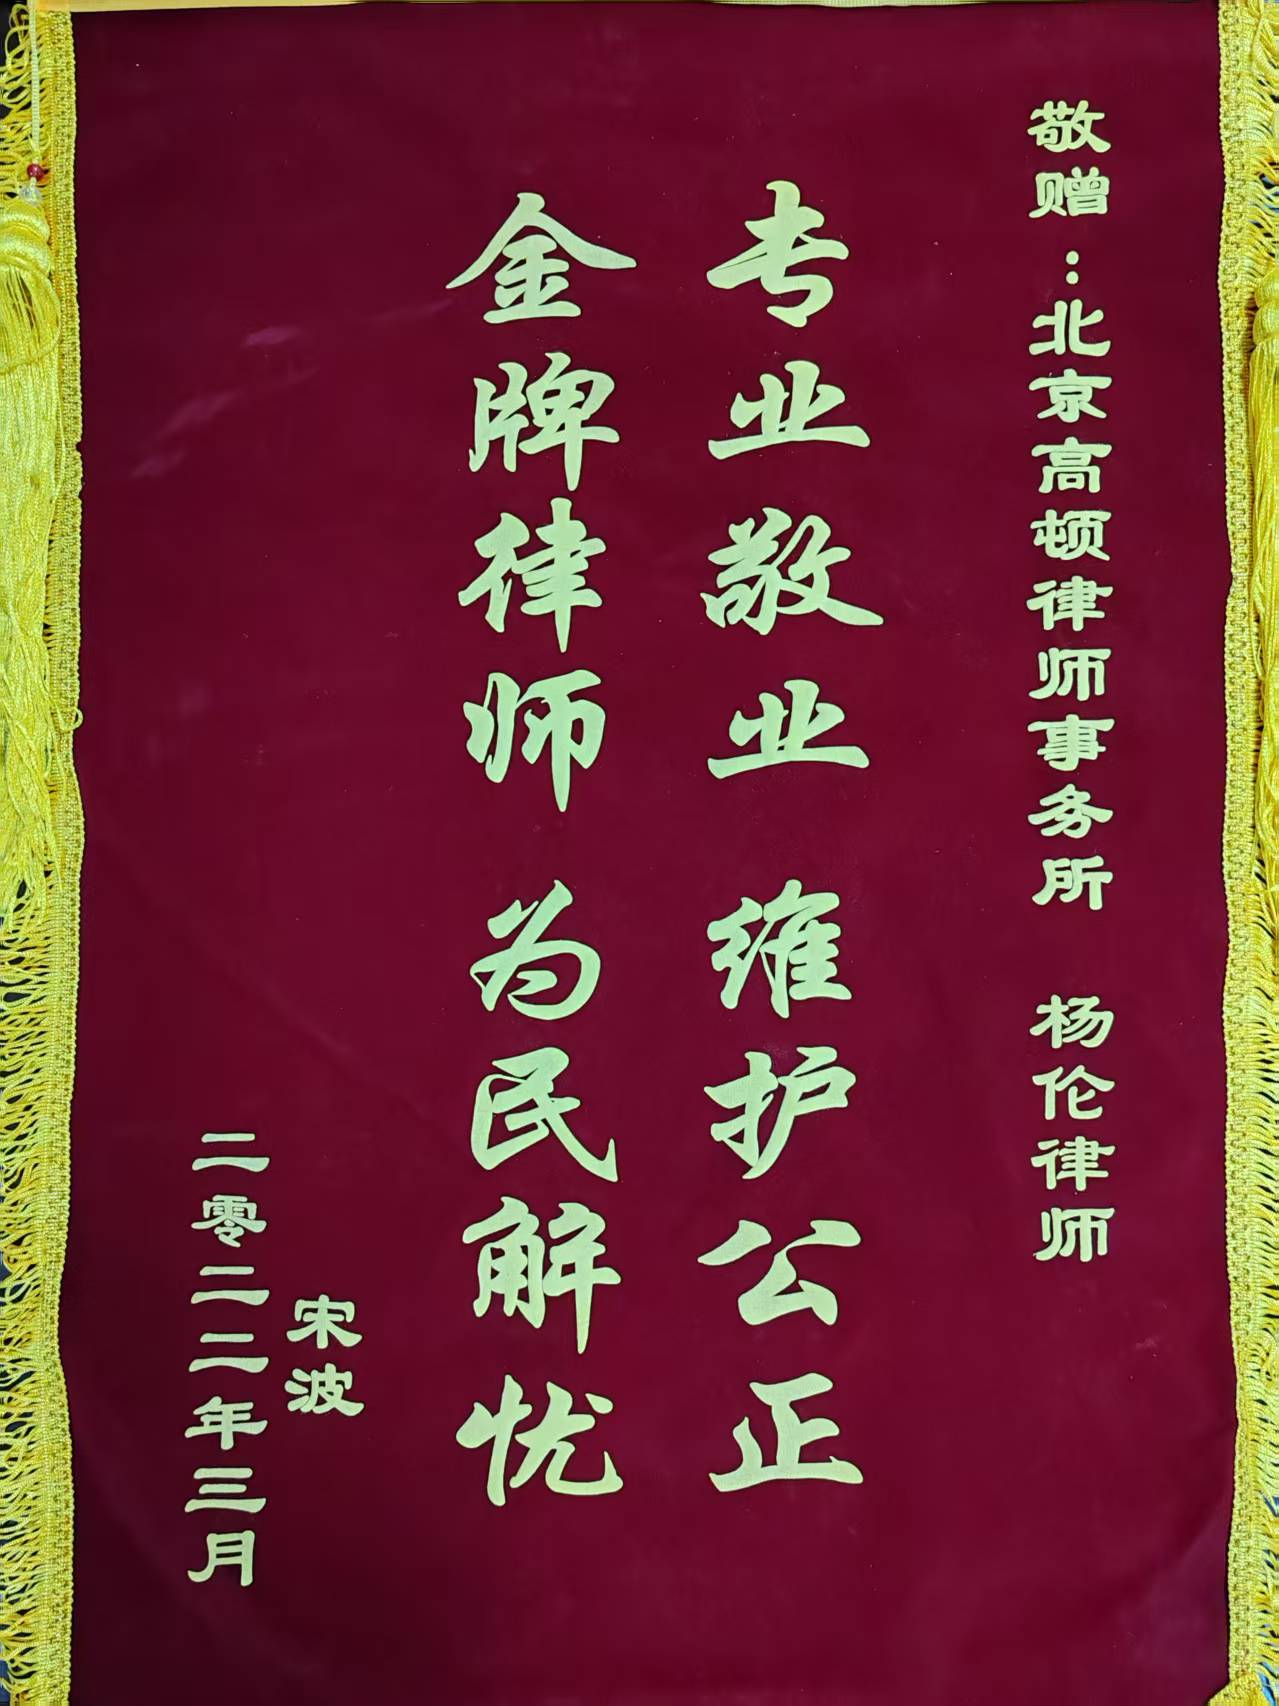 敬赠：北京高顿律师事务所 杨伦律师
专业敬业 维护公正
金牌律师 为民解忧
宋波
二零二二年三月